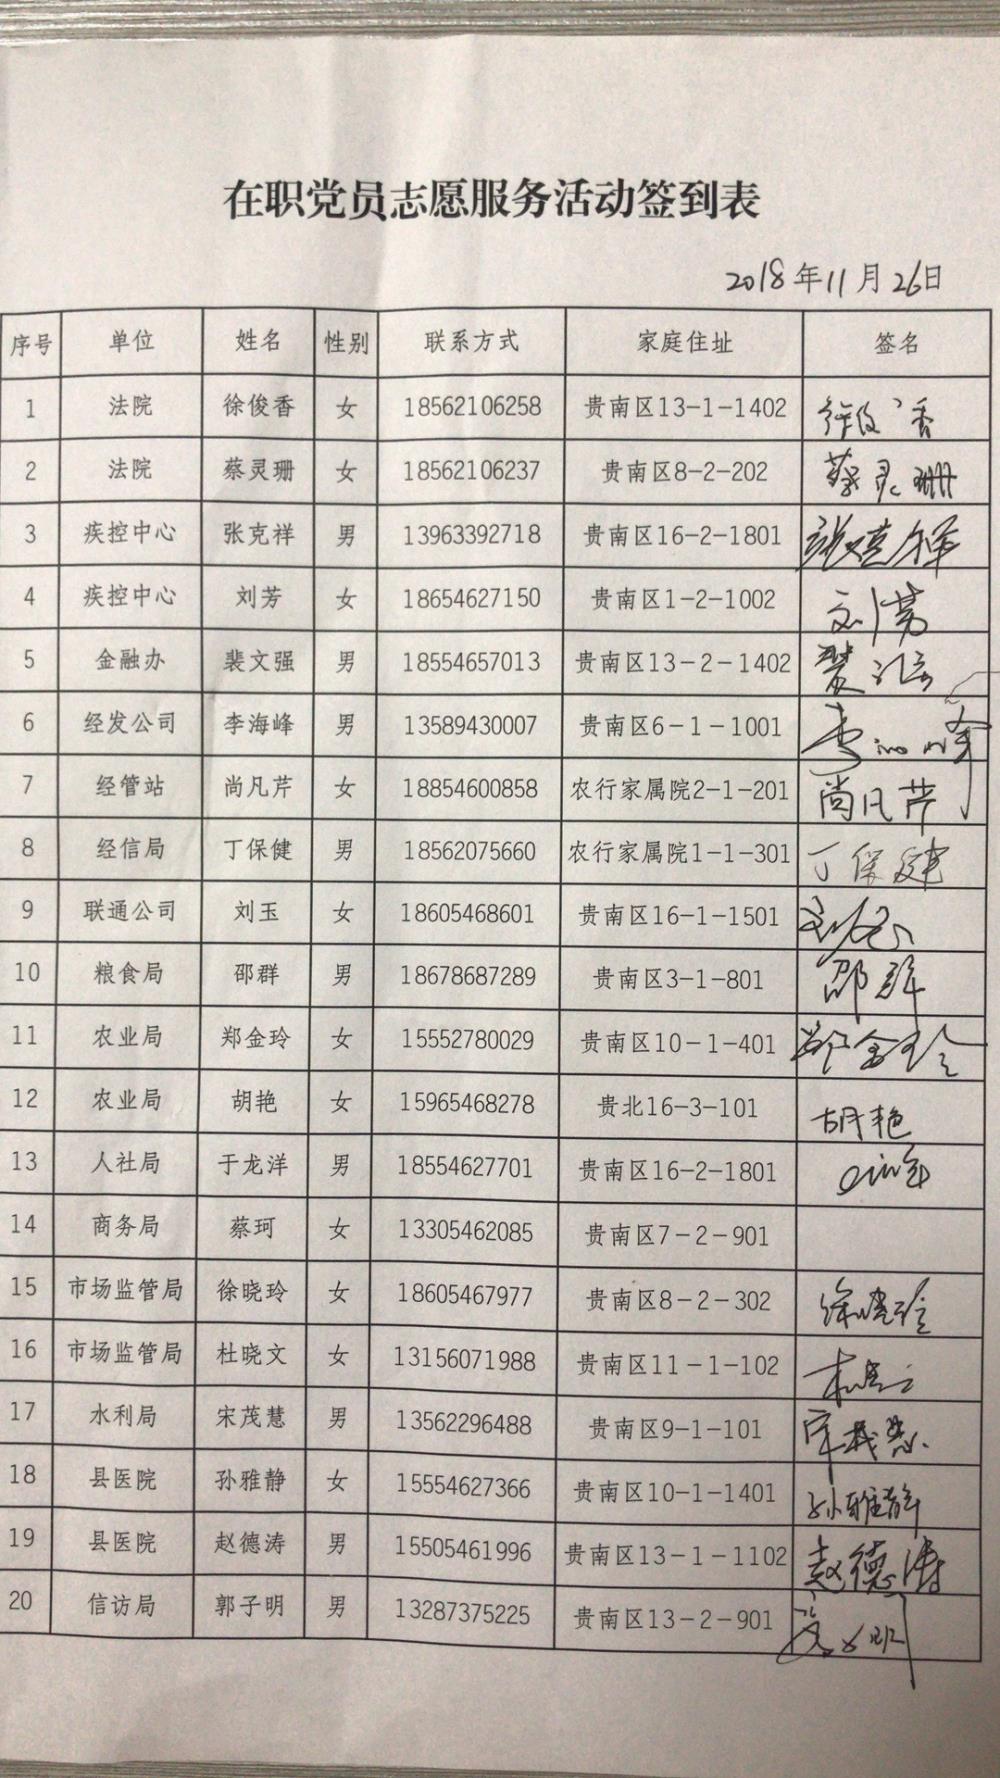 在职党员志愿服务活动签到表
2018年11月26日
序号 单位 姓名 性别 联系方式 家庭住址 签名
1 法院 徐俊香 女 18562106258 贵南区13-1-1402 徐俊香
2 法院 蔡灵珊 女 18562106237 贵南区8-2-202 蔡灵珊
3 疾控中心 张克祥 男 13963392718 贵南区16-2-1801 张克祥
4 疾控中心 刘芳 女 18654627150 贵南区1-2-1002 刘芳
5 金融办 裴文强 男 18554657013 贵南区13-2-1402
6 经发公司 李海峰 男 13589430007 贵南区6-1-1001 李海峰
7 经管站 尚凡芹 女 18854600858 农行家属院2-1-201 尚凡芹
8 经信局 丁保健 男 18562075660 农行家属院1-1-301 丁保健
9 联通公司 刘玉 女 18605468601 贵南区16-1-1501
10 粮食局 邵群 男 18678687289 贵南区3-1-801 邵群
11 农业局 郑金玲 女 15552780029 贵南区10-1-401 郑金玲
12 农业局 胡艳 女 15965468278 贵北16-3-101 胡艳
13 人社局 于龙洋 男 18554627701 贵南区16-2-1801
14 商务局 蔡珂 女 13305462085 贵南区7-2-901
15 市场监管局 徐晓玲 女 18605467977 贵南区8-2-302 徐晓玲
16 市场监管局 杜晓文 女 13156071988 贵南区11-1-102
17 水利局 宋茂慧 男 13562296488 贵南区9-1-101 宋茂慧
18 县医院 孙雅静 女 15554627366 贵南区10-1-1401 孙雅静
19 县医院 赵德涛 男 15505461996 贵南区13-1-1102 赵德涛
20 信访局 郭子明 男 13287375225 贵南区13-2-901